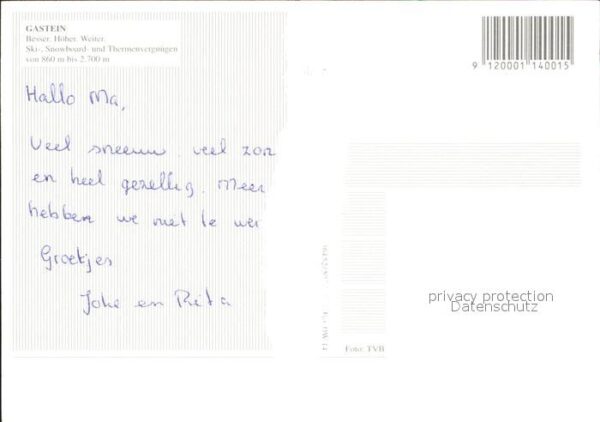 GASTEIN
Besser. Höher. Weiter.
Ski-, Snowboard- und Thermenvergnügen
von 860 m bis 2.700 m
9 120001 140015
Hallo Ma,
Veel sneeuw, veel zon
en heel gezellig. Meer
hebben we niet te
Groetjes
Joke en Rita
privacy protection
Datenschutz
Foto: TVB